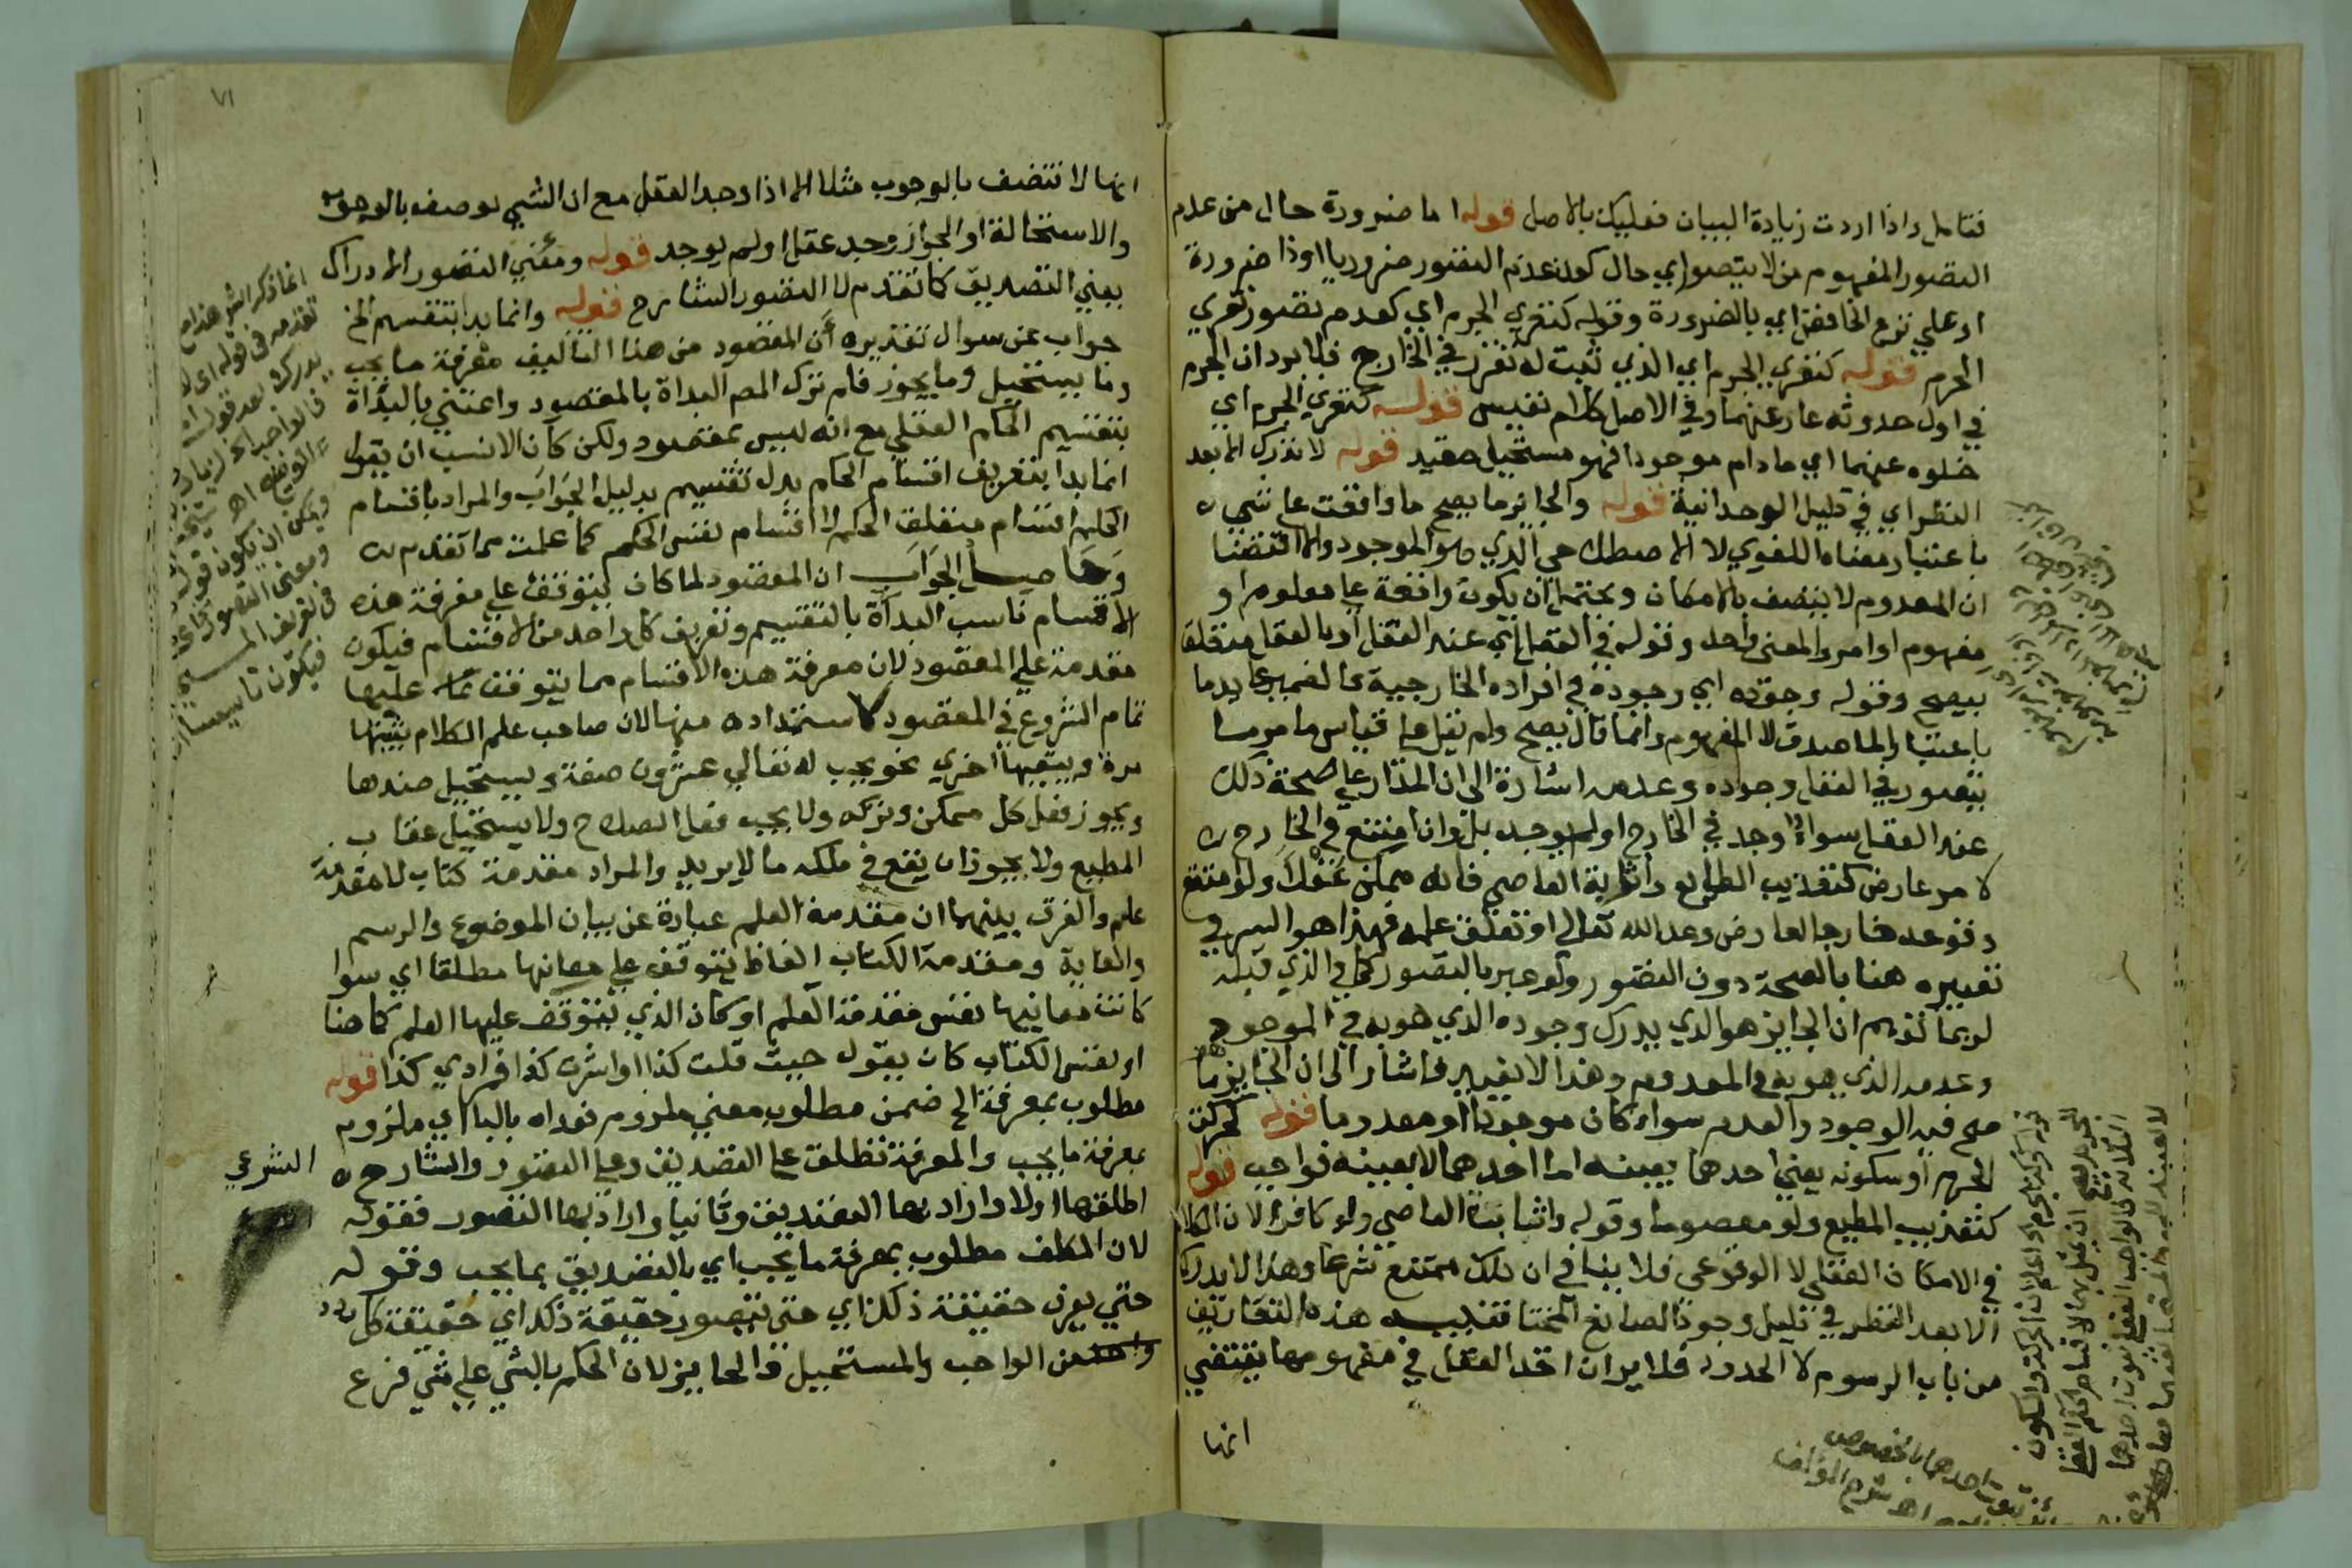 فتامل واذا اردت زيادة البيان فعليك بالاصل قوله اما ضرورة حال من عدم
التصور المفهوم من لا يتصور اي حال كون عدم التصور ضروريا او ذا ضرورة
او علي نزع الخافض اي بالضرورة وقوله كتعري الجرم اي كعدم تصور تعري
الجرم قوله كتعري الجرم اي الذي ثبت له تقرر في الخارج فلا يرد ان الجرم
في اول حدوثه عار عنهما وفي الاصل كلام نفيس قوله كتعري الجرم اي
خلوه عنهما اي ما دام موجودا فهو مستحيل مقيد قوله لا تدرك الا بعد
النظر اي في دليل الوحدانية قوله والجائز ما يصح ما واقعة علي شيء
باعتبار معناه اللغوي لا الاصطلاحي الذي هو الموجود والا اقتضا
ان المعدوم لا يتصف بالامكان ويحتمل ان يكون واقعة علي معلوم او
مفهوم او امر والمعنى واحد وقوله في العقل اي عند العقل او بالعقل متعلق
بيصح وقوله وجوده اي وجوده في افراده الخارجية فالضمير عايد ما
باعتبار الماصدق لا المفهوم وانما قال يصح ولم يقل علي قياس ما مر ما
يتصور في العقل وجوده وعدمه اشارة الى ان المدار علي صحة ذلك
عند العقل سواء وجد في الخارج او لم يوجد بل وان امتنع في الخارج
لامر عارض كتعذيب الطايع واثابة العاصي فانه ممكن عقلا ولو امتنع
وقوعه خارجا لعارض وعد الله تعالى او تعلق علمه فهذا هو السر في
تعبيره هنا بالصحة دون التصور ولو عبر بالتصور كما في الذي قبله
لربما توهم ان الجايز هو الذي يدرك وجوده الذي هو به في الموجود
وعدمه الذي هو به في المعدوم وهذا لا يغيير فاشار الى ان الجايز ما
صح فيه الوجود والعدم سواء كان موجودا او معدوما قوله كحركة
الجرم او سكونه يعني احدهما بعينه اما احدهما لا بعينه فواجب قوله
كتعذيب المطيع ولو معصوما وقوله واثابة العاصي ولو كافرا لان الكلام
في الامكان العقلي لا الوقوعي فلا ينافي ان ذلك ممتنع شرعا وهذا لا يدرك
الا بعد النظر في دليل وجود الصانع المختار تنبيه هذه التعاريف
من باب الرسوم لا الحدود فلا يرد ان اخذ العقل في مفهومها يقتضي
انها
قوله كحركة الجرم واعلم ان الحركة والسكون
للجرم يصح ان يمثل بهما لاقسام الحكم العقلي
الثلاثة فالواجب العقلي ثبوت احدهما
لا بعينه للجرم والمستحيل نفيهما معا
والجائز ثبوت احدهما بالخصوص
اهـ شرح المؤلف
٧١
انها لا تتصف بالوجوب مثلا الا اذا وجد العقل مع ان الشيء يوصف بالوجوب
والاستحالة او الجواز وجد عقل او لم يوجد قوله ومعنى التصور الادراك
يعني التصديق كما تقدم لا التصور الشارح قوله وانما بدا بتقسيم الخ
جواب عن سوال تقديره أن المقصود من هذا التاليف معرفة ما يجب
وما يستحيل وما يجوز فلم ترك المص البداة بالمقصود واعتني بالبداة
بتقسيم الحكم العقلي مع انه ليس بمقصود ولكن كان الانسب ان يقول
انما بدا بتعريف اقسام الحكم بدل تقسيم بدليل الجواب والمراد باقسام
الحكم اقسام متعلق الحكم لا اقسام نفس الحكم كما علمت مما تقدم
وحاصل الجواب ان المقصود لما كان يتوقف علي معرفة هذه
الاقسام ناسب البداة بالتقسيم وتعريف كل واحد من الاقسام فيكون
مقدمة علي المقصود لان معرفة هذه الاقسام مما يتوقف عليها
تمام الشروع في المقصود لاستمداده منها لان صاحب علم الكلام يثبتها
مرة وينفيها اخري نحو يجب له تعالي عشرون صفة ويستحيل ضدها
ويجوز فعل كل ممكن وتركه ولا يجب فعل الصلاح ولا يستحيل عقاب
المطيع ولا يجوز ان يقع في ملكه ما لا يريد والمراد مقدمة كتاب لا مقدمة
علم والفرق بينهما ان مقدمة العلم عبارة عن بيان الموضوع والرسم
والغاية ومقدمة الكتاب الفاظ يتوقف علي معانيها مطلقا اي سوا
كانت معانيها نفس مقدمة العلم او كان الذي يتوقف عليها العلم كما هنا
او نفس الكتاب كان يقول حيث قلت كذا او اشرت كذا فمرادي كذا قوله
مطلوب بمعرفة الخ ضمن مطلوب معني ملزوم فعداه بالبا اي ملزوم
بمعرفة ما يجب والمعرفة تطلق علي التصديق وعلي التصور والشارح
اطلقها اولا واراد بها التصديق وثانيا واراد بها التصور فقوله
لان المكلف مطلوب بمعرفة ما يجب اي بالتصديق بما يجب وقوله
حتي يعرف حقيقة ذلك اي حتى يتصور حقيقة ذلك اي حقيقة كل
واحد من الواجب والمستحيل والجايز لان الحكم بالشي علي شي فرع
الشرعي
انما ذكر الش هذا مع
تقدمه في قوله اي لا
يدرك بعد قوله
فالواجب لزيادة
ويمكن ان يكون قوله
ومعنى التصور
في تعريف المستحيل
فيكون تاسيسا